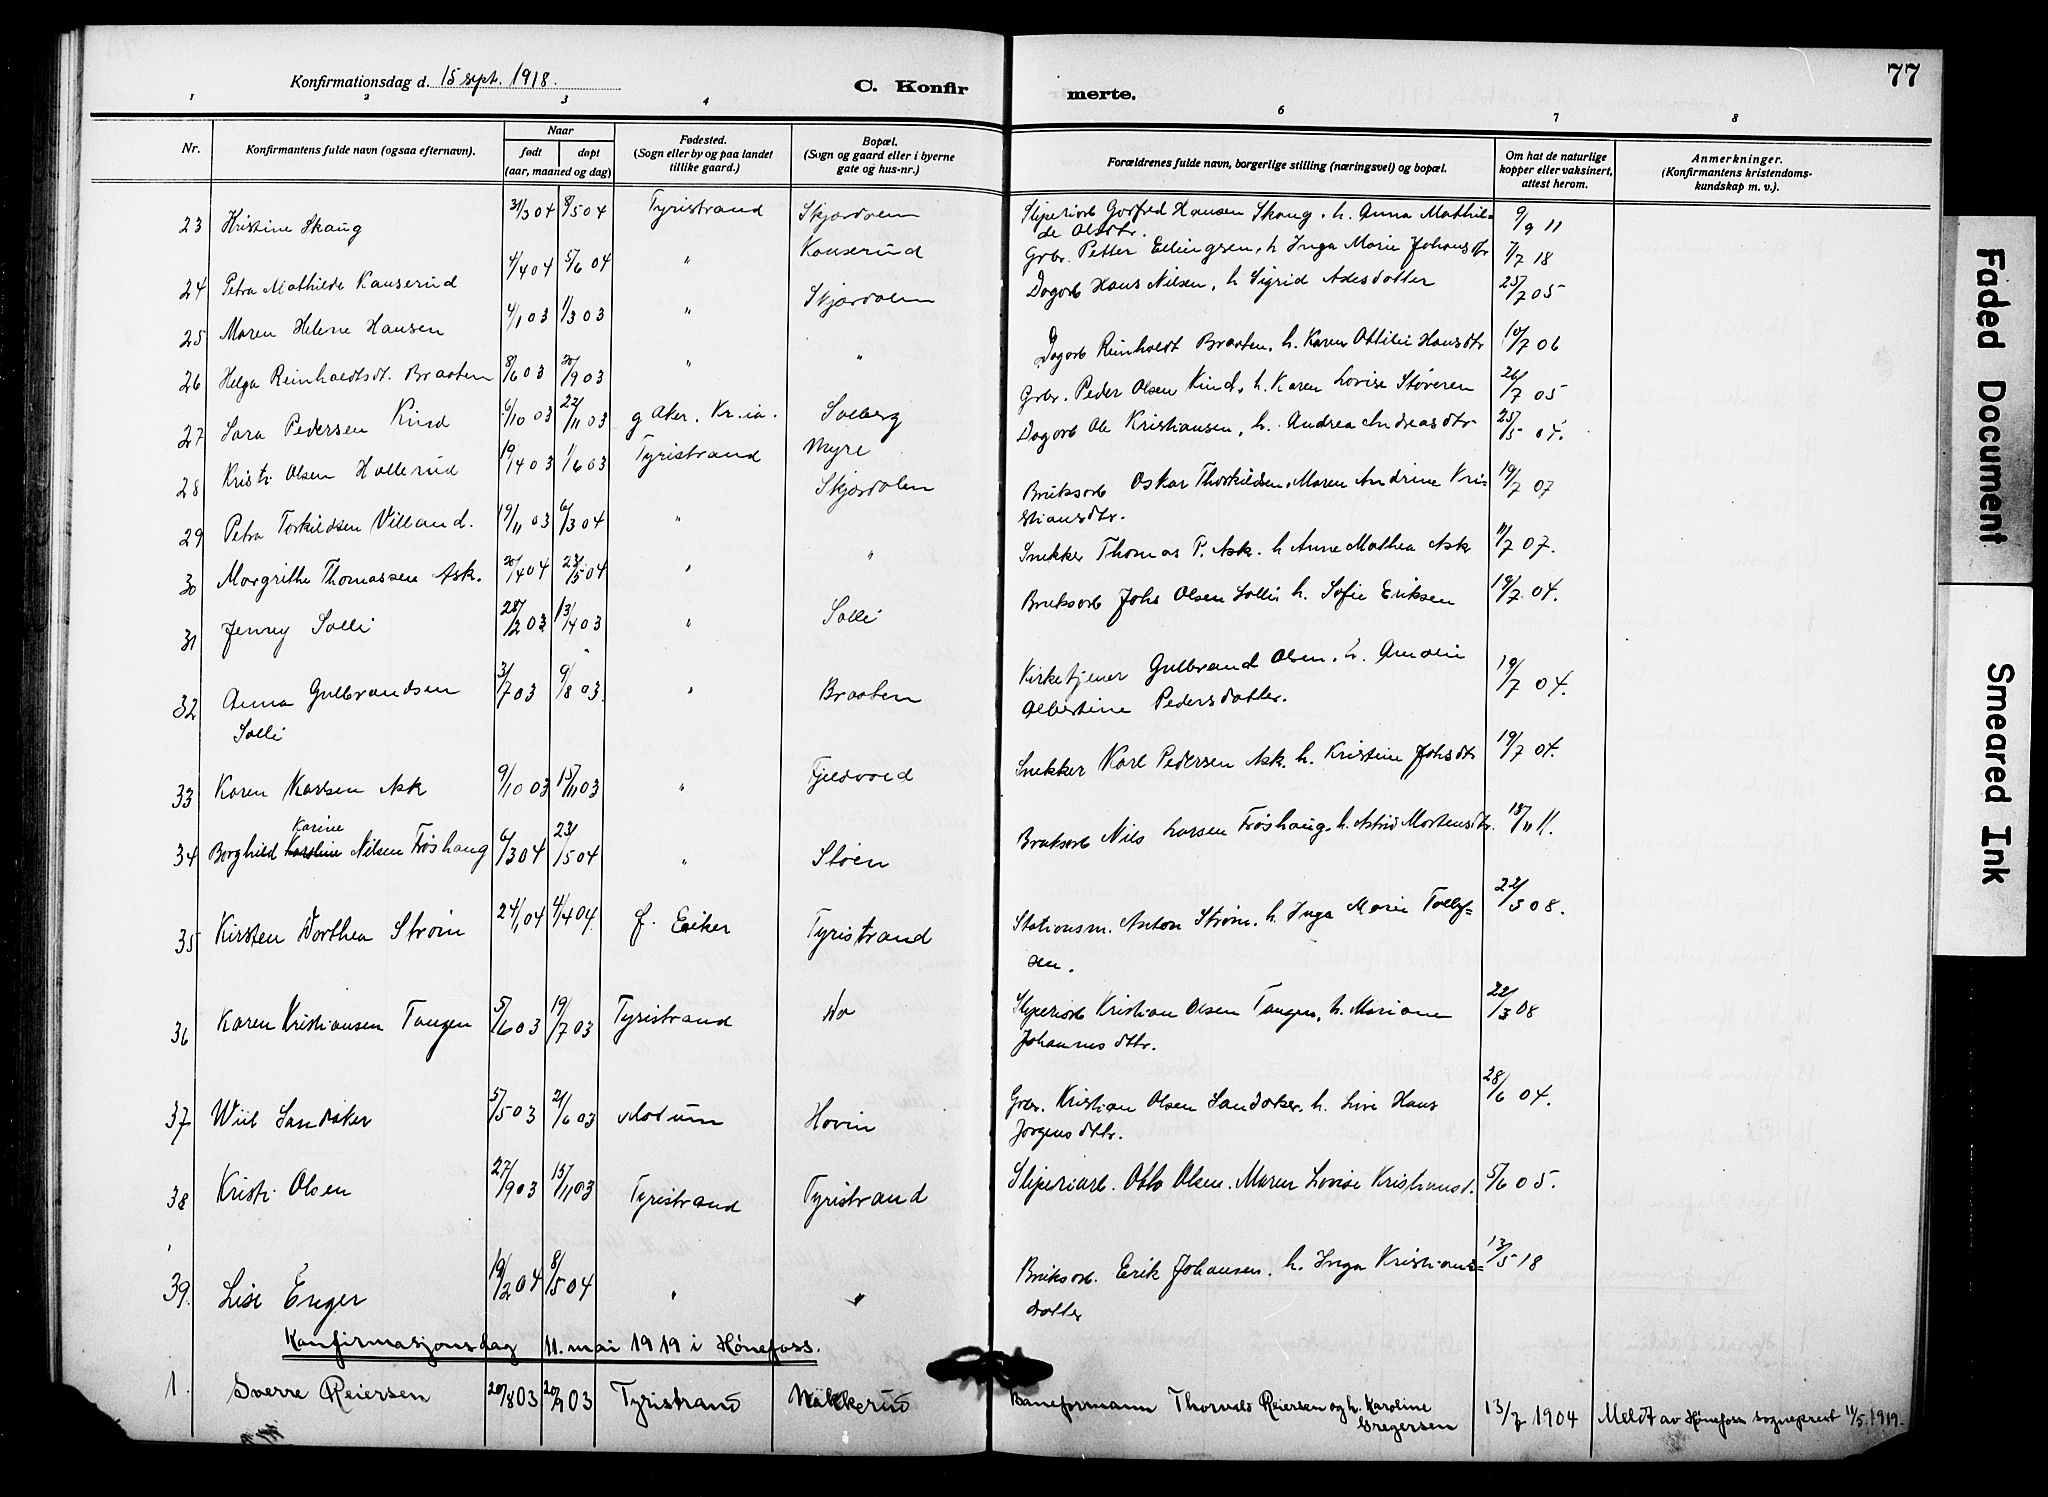 77
Konfirmationsdag d. 15 sept. 1918.
C. Konfirmerte.
1 2 3 4 6 7 8
Nr. Konfirmantens fulde navn (ogsaa efternavn). Naar født døpt (aar, maaned og dag) Fødested. (Sogn eller by og paa landet tillike gaard.) Bopæl. (Sogn og gaard eller i byerne gate og hus-nr.) Forældrenes fulde navn, borgerlige stilling (næringsvei) og bopæl. Om hat de naturlige kopper eller vaksinert, attest herom. Anmerkninger. (Konfirmantens kristendoms- kundskap m. v.).
23 Kristine Skaug 31/3 04 8/5 04 Tyristrand Skjærdalen Sliperiarb Godfred Hansen Skaug. h. Anna Mathil= 9/9 11
de Olsdtr.
24 Petra Mathilde Kauserud 4/4 04 5/6 04 " Kauserud Grbr. Petter Ellingsen, h Inga Marie Johansdtr 7/7 18
25 Maren Helene Hansen 4/1 03 1/3 03 " Skjærdalen Dagarb Hans Nilsen, h Sigrid Axelsdatter 25/7 05
26 Helga Reinholdtsdt. Braaten 8/6 03 20/9 03 " " Dagarb Reinholdt Braaten, h. Karen Ottilie Hansdtr 10/7 06
27 Sara Pedersen Kind 6/10 03 22/11 03 g Aker. Kr.ia. Solberg Grbr. Peder Olsen Kind, h. Karen Lovise Støveren 26/7 05
28 Kristi Olsen Hollerud 19/4 03 1/6 03 Tyristrand Myre Dagarb Ole Kristiansen, h. Andrea Andreasdtr 25/5 04.
29 Petra Torkildsen Villand. 19/11 03 6/3 04 " Skjærdalen Bruksarb Oskar Thorkildsen, Maren Andrine Kri= 19/7 07
stiansdtr.
30 Margrithe Thomassen Ask. 20/4 04 23/5 04 " " Snekker Thomas P. Ask. h Anne Mathea Ask 11/7 07.
31 Jenny Solli 28/2 03 13/4 03 " Solli Bruksarb Johs Olsen Solli h. Sofie Eriksen 19/7 04.
32 Anna Gulbrandsen 3/7 03 9/8 03. " Braaten Kirketjener Gulbrand Olsen, h. Amalie 19/7 04.
Solli Albertine Pedersdatter.
33 Karen Karlsen Ask 9/10 03 15/11 03 " Fjeldvold Snekker Karl Pedersen Ask. h. Kristine Johsdtr 19/7 04.
Karine
34 Borghild Karoline Nilsen Frøshaug 6/3 04 23/5 04 " Støen Bruksarb Nils Larsen Frøshaug, h. Astrid Mortensdtr. 18/11 11.
35 Kirsten Dorthea Strøm 24/1 04 4/4 04. f. Eiker Tyristrand Stationsm. Anton Strøm. h. Inga Marie Tollef= 22/3 08.
sen.
36 Karen Kristiansen Tangen 5/6 03 19/7 03 Tyristrand Do Sliperiarb Kristian Olsen Tangen, h. Mariane 22/3 08
Johannesdttr.
37 Wiil Sandaker 5/5 03 21/6 03 Modum Hovin Grbr. Kristian Olsen Sandaker. h. Live Hans 28/6 04.
Jørgensdttr.
38 Kristi Olsen 27/9 03 15/11 03 Tyristrand Tyristrand Sliperiarb. Otto Olsen. Maren Lovise Kristiansd. 5/6 05.
39. Lise Enger 19/2 04 8/5 04 " " Bruksarb. Erik Johansen. h. Inga Kristians= 13/5 18
datter
Konfirmasjonsdag 11. mai 1919 i Hønefoss.
1. Sverre Reiersen 20/8 03 20/9 03 Tyristrand Nækkerud Baneformann Thorvald Reiersen og h. Karoline 13/7 1904 Meldt av Hønefoss sogneprest 11/5 1919.
Gregersen
Faded Document
Smeared Ink